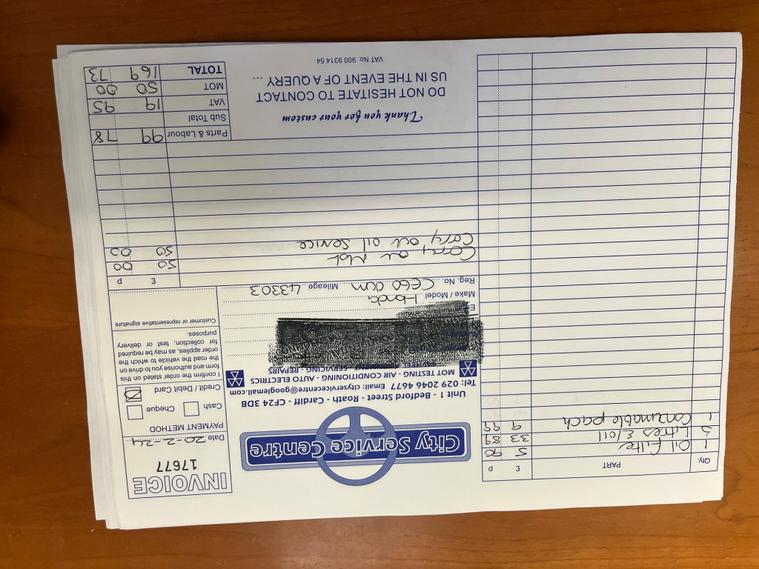 City Service Centre
Unit 1 - Bedford Street - Roath - Cardiff - CF24 3DB
Tel: 029 2046 4677 Email: cityservicecentre@googlemail.com
MOT TESTING - AIR CONDITIONING - AUTO ELECTRICS
SERVICING - REPAIRS
INVOICE
17677
Date 20-2-24
PAYMENT METHOD
Cash Cheque
Credit / Debit Card
I confirm the order stated on this
form and authority to you to drive on
the road the vehicle to which the
order applies, as may be required
for collection, test or delivery
purposes.
Customer or representative signature
Make / Model Honda
Reg. No. CE60 Mileage 43303
£ p
Carry out Mot 50 00
Carry out oil service 50 00
Parts & Labour 99 78
Sub Total
VAT 19 95
MOT 50 00
TOTAL 169 73
Thank you for your custom
DO NOT HESITATE TO CONTACT
US IN THE EVENT OF A QUERY ...
VAT No. 900 9314 54
Qty. PART £ p
1 Oil filter 5 90
5 Litres E/oil 33 89
1 Consumable pack 9 99